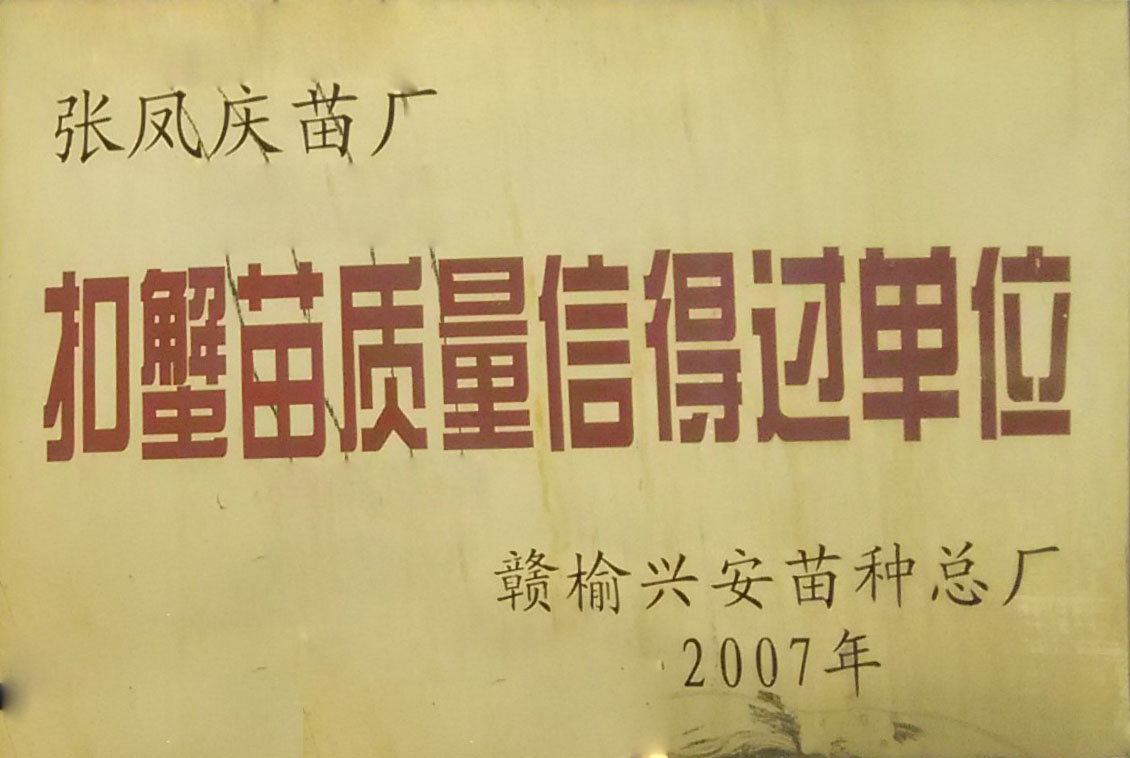 张凤庆苗厂
扣蟹苗质量信得过单位
赣榆兴安苗种总厂
2007年